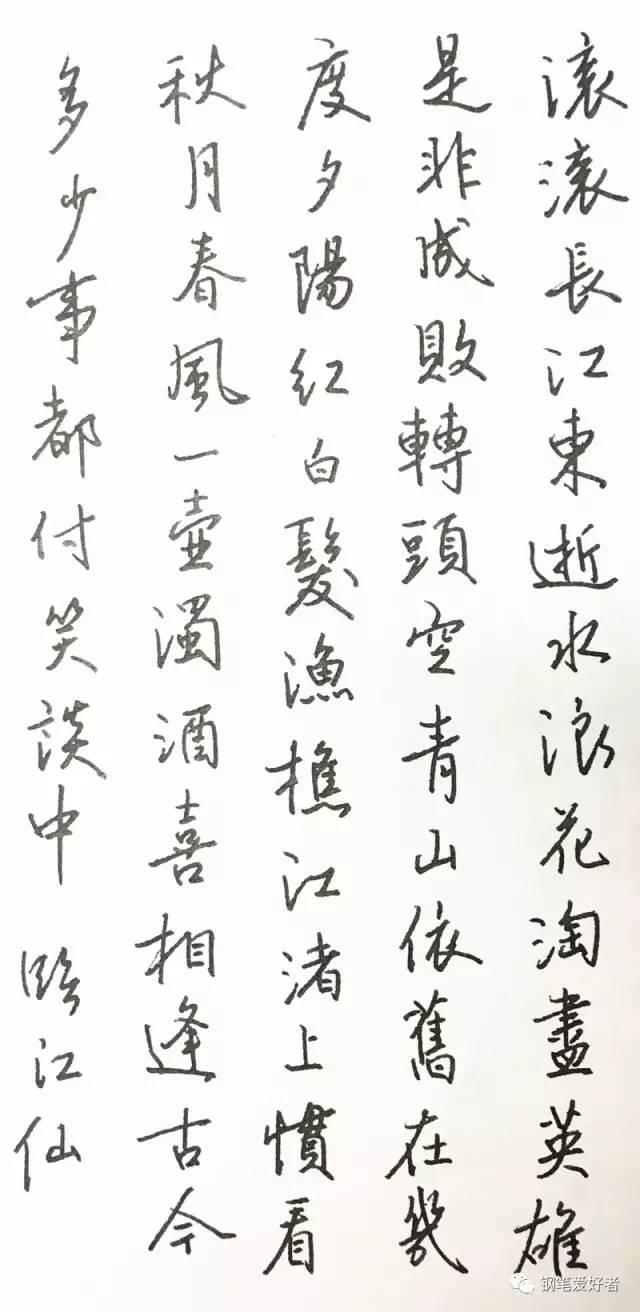 滾滾長江東逝水浪花淘盡英雄
是非成敗轉頭空青山依舊在幾
度夕陽紅白髮漁樵江渚上慣看
秋月春風一壺濁酒喜相逢古今
多少事都付笑談中 臨江仙
钢笔爱好者